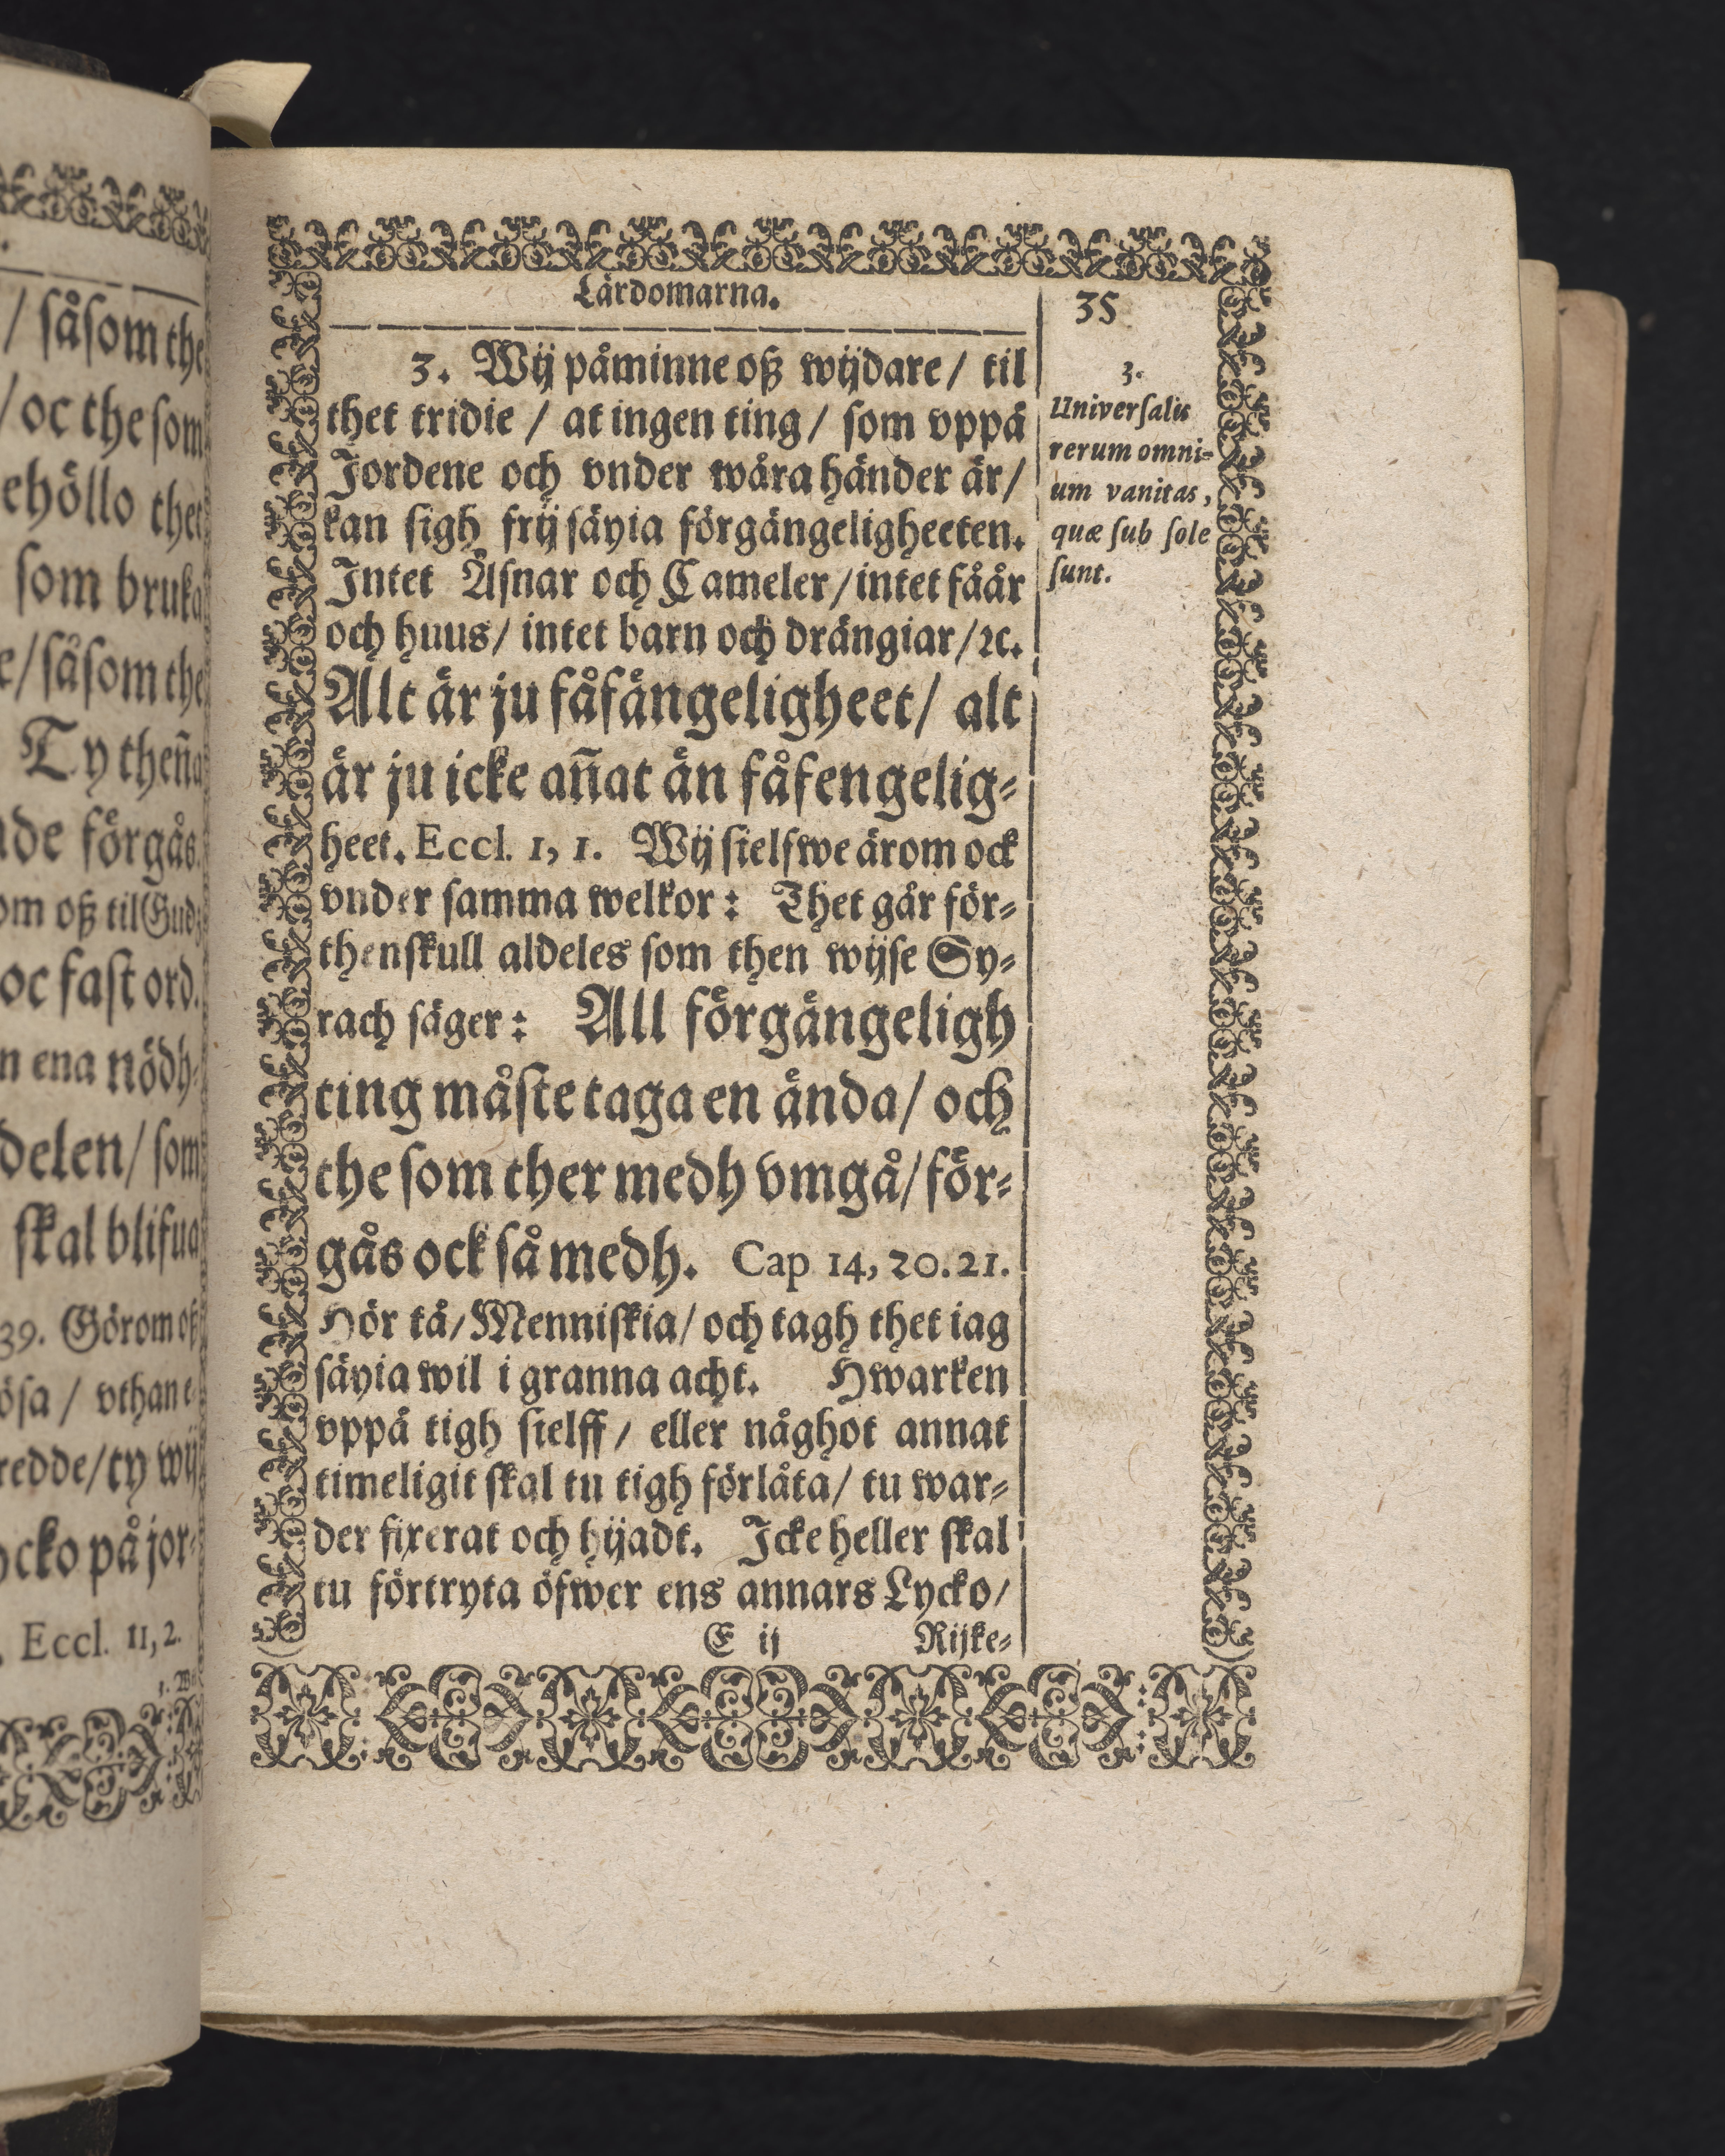 / såsom the
/ oc the som
ehöllo thet
som bruka
e/ såsom the
Ty theña
de förgås.
om oß til Gud
oc fast ord.
n ena nödh-
delen/ som
skal blifua
39. Görom oß
ösa / vthan e-
redde/ ty wij
ycko på jor-
Eccl. 11, 2.
Lärdomarna.
35
3. Wij påminne oß wijdare/ til
thet tridie / at ingen ting/ som vppå
Jordene och vnder wåra händer är/
kan sigh frij säyia förgängeligheeten.
Intet Åsnar och Cameler/ intet fåår
och huus/ intet barn och drängiar/ ꝛc.
Alt är ju fåfängeligheet/ alt
är ju icke añat än fåfengelig-
heet. Eccl. 1, 1. Wij sielfwe ärom ock
vnder samma welkor: Thet går för-
thenskull aldeles som then wijse Sy-
rach säger: All förgängeligh
ting måste taga en ända/ och
the som ther medh vmgå/ för-
gås ock så medh. Cap 14, 20. 21.
Hör tå/ Menniskia/ och tagh thet iag
säyia wil i granna acht. Hwarken
vppå tigh sielff / eller någhot annat
timeligit skal tu tigh förlåta/ tu war-
der fixerat och hijadt. Icke heller skal
tu förtryta öfwer ens annars Lycko/
E ij Rijke-
3.
Universalis
rerum omni-
um vanitas,
quæ sub sole
sunt.